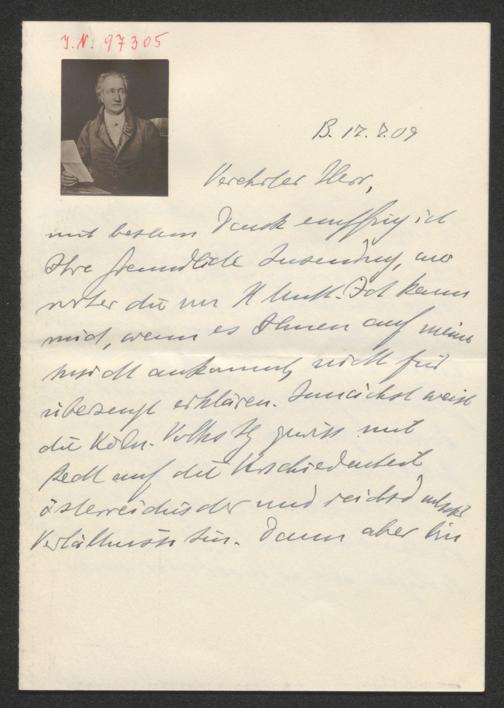 J.N. 97305
B. 17.7.09
Verehrter Herr,
mit bestem Dank empfing ich
Ihre freundliche Zusendung, 
die von Ich kann
mich, wenn es Ihnen auf meine
Ansicht ankommt, nicht für
überzeugt erklären. Zunächst weist
die Köln. Volksztg gewiss mit
Recht auf die Verschiedenheit
österreichischer und reichsdeutscher
Verhältnisse hin. Dann aber bin